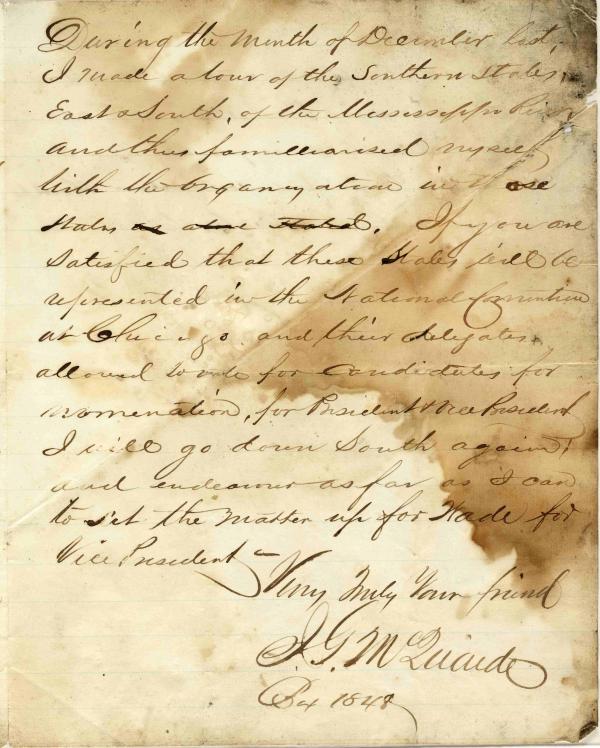 During the Month of December last,
I made a tour of the Southern States,
East & South, of the Mississippi River
and thus familiarised myself
with the organization in those
States as above stated. If you are
satisfied that these States will be
represented in the National Convention
at Chicago and their delegates
allowed to vote for candidates for
nomination, for President & Vice President
I will go down South again,
and endeavour as far as I can
to set the matter up for Wade for
Vice President –
Very Truly Your friend
J. G. McQuaide
Bx 1848